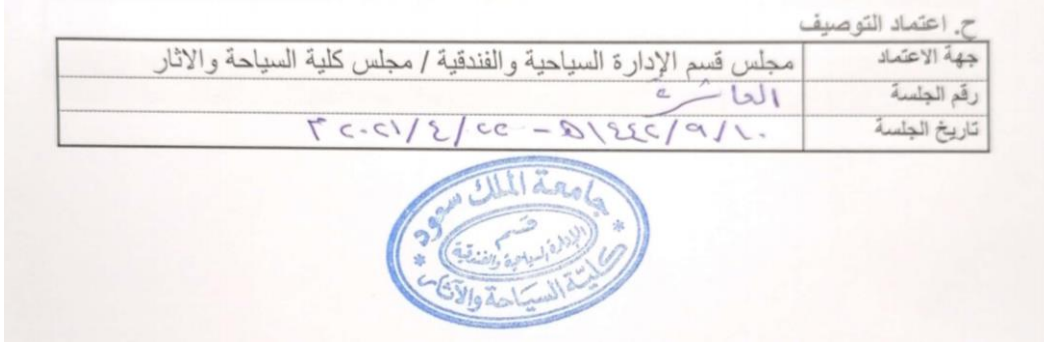 ح. اعتماد التوصيف
جهة الاعتماد مجلس قسم الإدارة السياحية والفندقية / مجلس كلية السياحة والاثار
رقم الجلسة العاشرة
تاريخ الجلسة ١٤٤٢/٩/١٠هـ – ٢٠٢١/٤/٢٢م
جامعة الملك سعود
قسم
الإدارة السياحية والفندقية
كلية السياحة والآثار